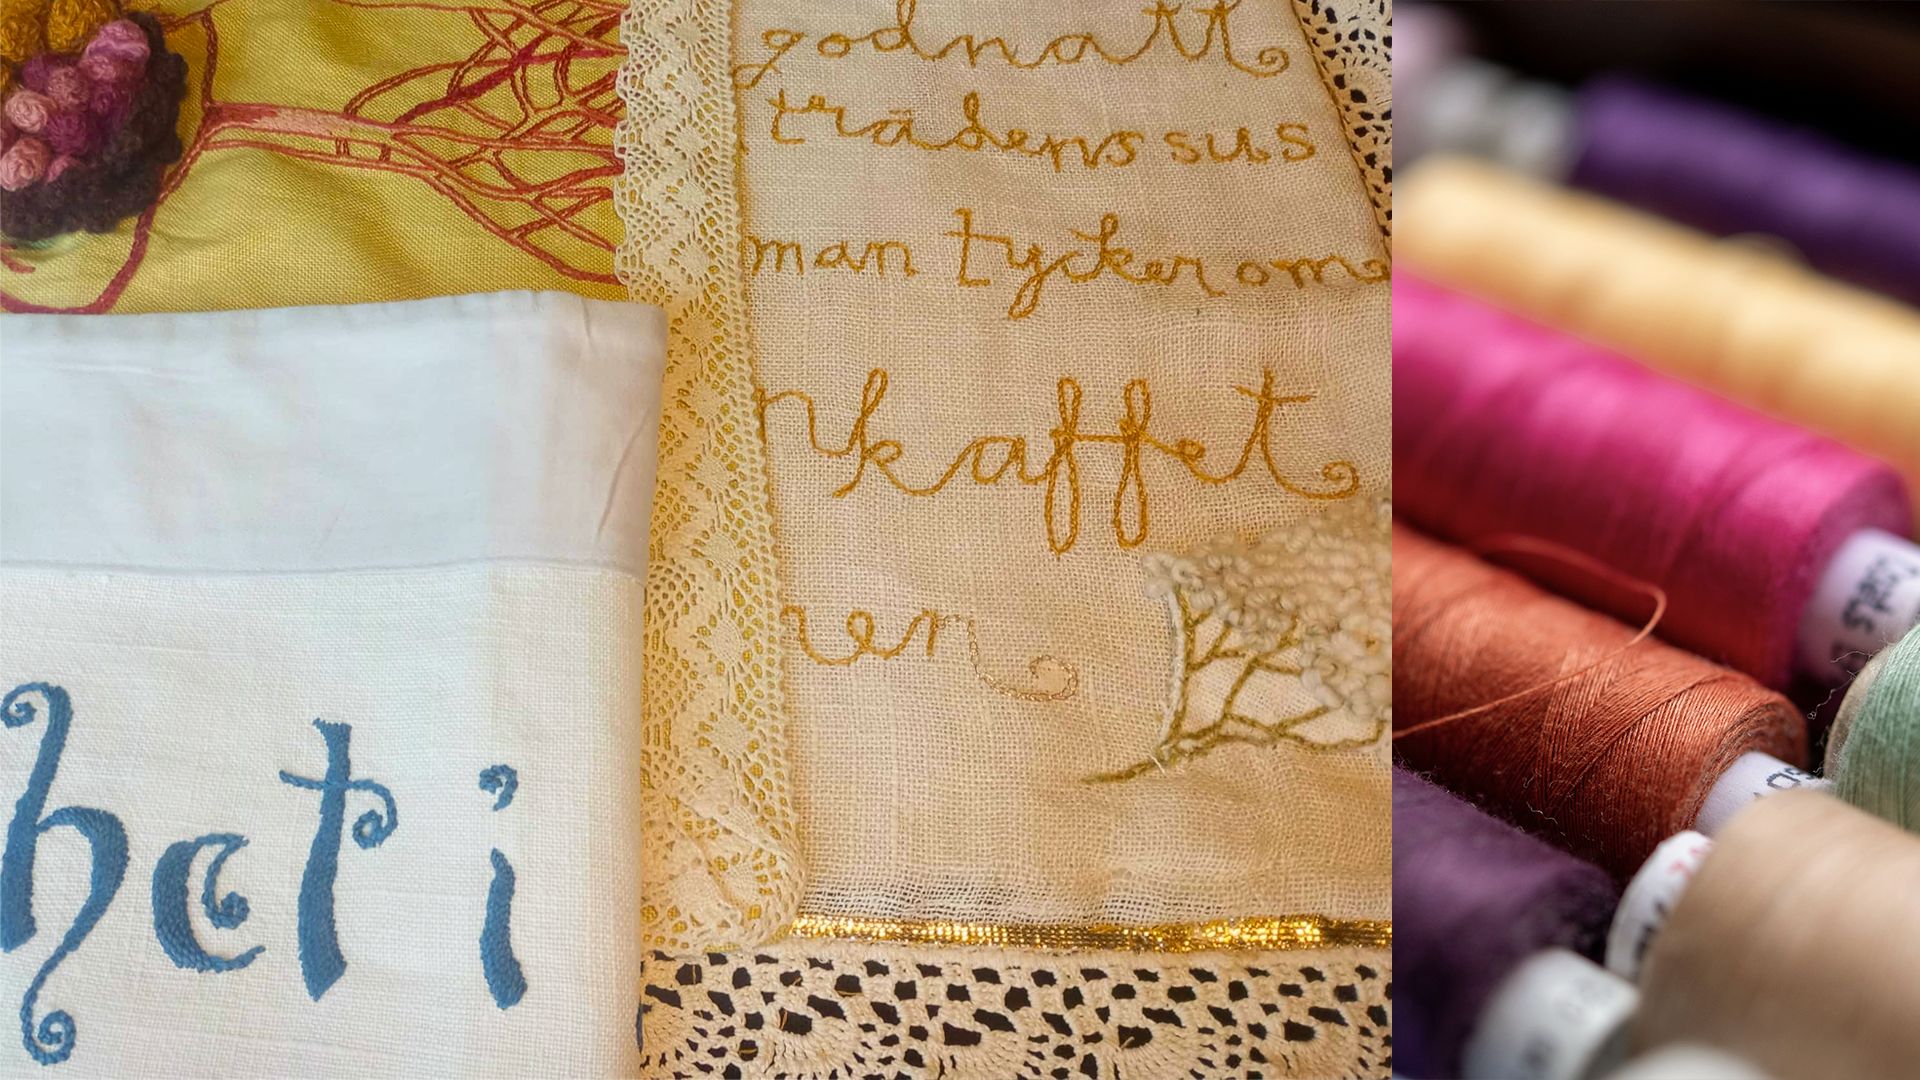 godnatt
trädens sus
man tycker om
kaffet
het i